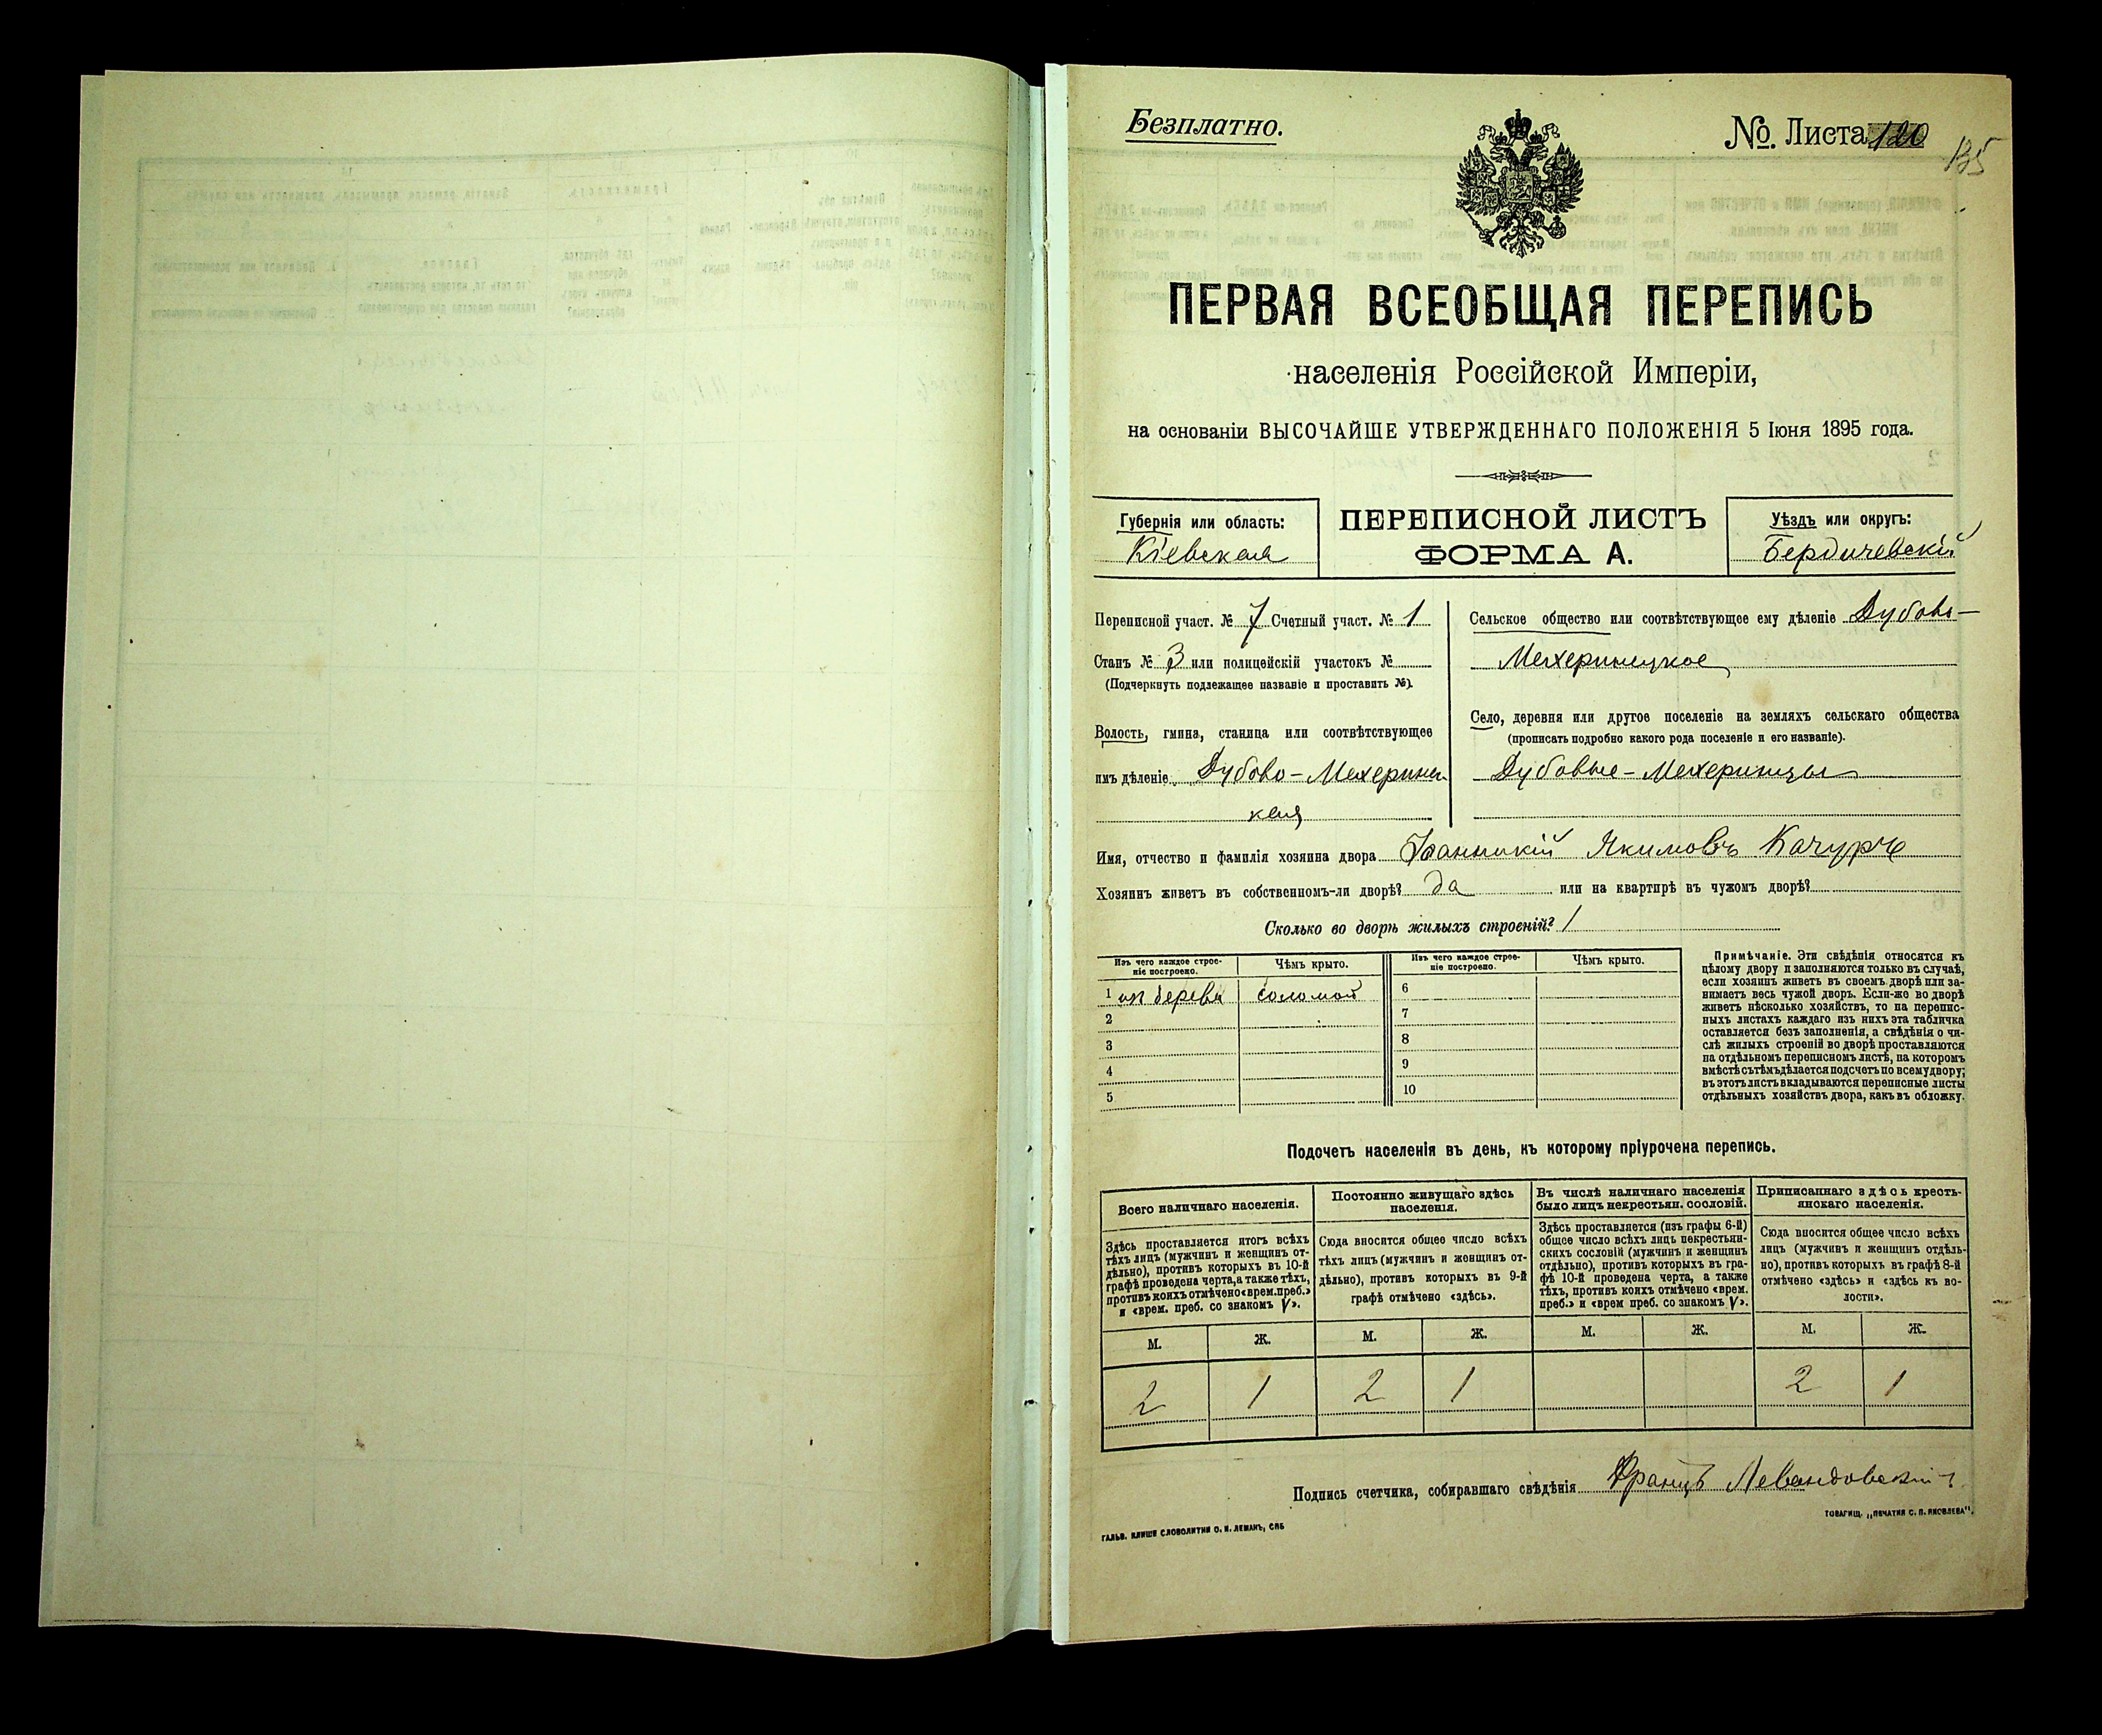 Безплатно.
№. Листа 120
135
ПЕРВАЯ ВСЕОБЩАЯ ПЕРЕПИСЬ
населенія Россійской Имперіи,
на основаніи ВЫСОЧАЙШЕ УТВЕРЖДЕННАГО ПОЛОЖЕНІЯ 5 Іюня 1895 года.
Губернія или область:
Кіевская
ПЕРЕПИСНОЙ ЛИСТЪ
ФОРМА А.
Уѣздъ или округъ:
Бердичевскій
Переписной участ. № 7 Счетный участ. № 1
Станъ № 3 или полицейскій участокъ №
(Подчеркнуть подлежащее названіе и проставить №).
Волость, гмина, станица или соотвѣтствующее
имъ дѣленіе Дубово-Мехеринец
кая
Сельское общество или соотвѣтствующее ему дѣленіе Дубово-
Мехеринецкое
Село, деревня или другое поселеніе на земляхъ сельскаго общества
(прописать подробно какого рода поселеніе и его названіе).
Дубовые-Мехеринцы
Имя, отчество и фамилія хозяина двора Іоанникій Якимовъ Качуръ
Хозяинъ живетъ въ собственномъ-ли дворѣ? да или на квартирѣ въ чужомъ дворѣ?
Сколько во дворѣ жилыхъ строеній? 1
Изъ чего каждое строе-
ніе построено.
Чѣмъ крыто.
Изъ чего каждое строе-
ніе построено.
Чѣмъ крыто.
1 из дерева соломой
2
3
4
5
6
7
8
9
10
Примѣчаніе. Эти свѣдѣнія относятся къ
цѣлому двору и заполняются только въ случаѣ,
если хозяинъ живетъ въ своемъ дворѣ или за-
нимаетъ весь чужой дворъ. Если-же во дворѣ
живетъ нѣсколько хозяйствъ, то на перепис-
ныхъ листахъ каждаго изъ нихъ эта табличка
оставляется безъ заполненія, а свѣдѣнія о чи-
слѣ жилыхъ строеній во дворѣ проставляются
на отдѣльномъ переписномъ листѣ, на которомъ
вмѣстѣ съ тѣмъ дѣлается подсчетъ по всему двору;
въ этотъ листъ вкладываются переписные листы
отдѣльныхъ хозяйствъ двора, какъ въ обложку.
Подсчетъ населенія въ день, къ которому пріурочена перепись.
Всего наличнаго населенія.
Здѣсь проставляется итогъ всѣхъ
тѣхъ лицъ (мужчинъ и женщинъ от-
дѣльно), противъ которыхъ въ 10-й
графѣ проведена черта, а также тѣхъ,
противъ коихъ отмѣчено «врем. преб.»
и «врем. преб. со знакомъ V».
Постоянно живущаго здѣсь
населенія.
Сюда вносится общее число всѣхъ
тѣхъ лицъ (мужчинъ и женщинъ от-
дѣльно), противъ которыхъ въ 9-й
графѣ отмѣчено «здѣсь».
Въ числѣ наличнаго населенія
было лицъ некрестьян. сословій.
Здѣсь проставляется (изъ графы 6-й)
общее число всѣхъ лицъ некрестьян-
скихъ сословій (мужчинъ и женщинъ
отдѣльно), противъ которыхъ въ гра-
фѣ 10-й проведена черта, а также
тѣхъ, противъ коихъ отмѣчено «врем.
преб.» и «врем преб. со знакомъ V».
Приписаннаго здѣсь кресть-
янскаго населенія.
Сюда вносится общее число всѣхъ
лицъ (мужчинъ и женщинъ отдѣль-
но), противъ которыхъ въ графѣ 8-й
отмѣчено «здѣсь» и «здѣсь къ во-
лости».
М. Ж. М. Ж. М. Ж. М. Ж.
2 1 2 1 2 1
Подпись счетчика, собиравшаго свѣдѣнія Францъ Левандовскій
ГАЛЬВ. КЛИШЕ СЛОВОЛИТНИ О. И. ЛЕМАНЪ, СПБ
ТОВАРИЩ. „ПЕЧАТНЯ С. П. ЯКОВЛЕВА".